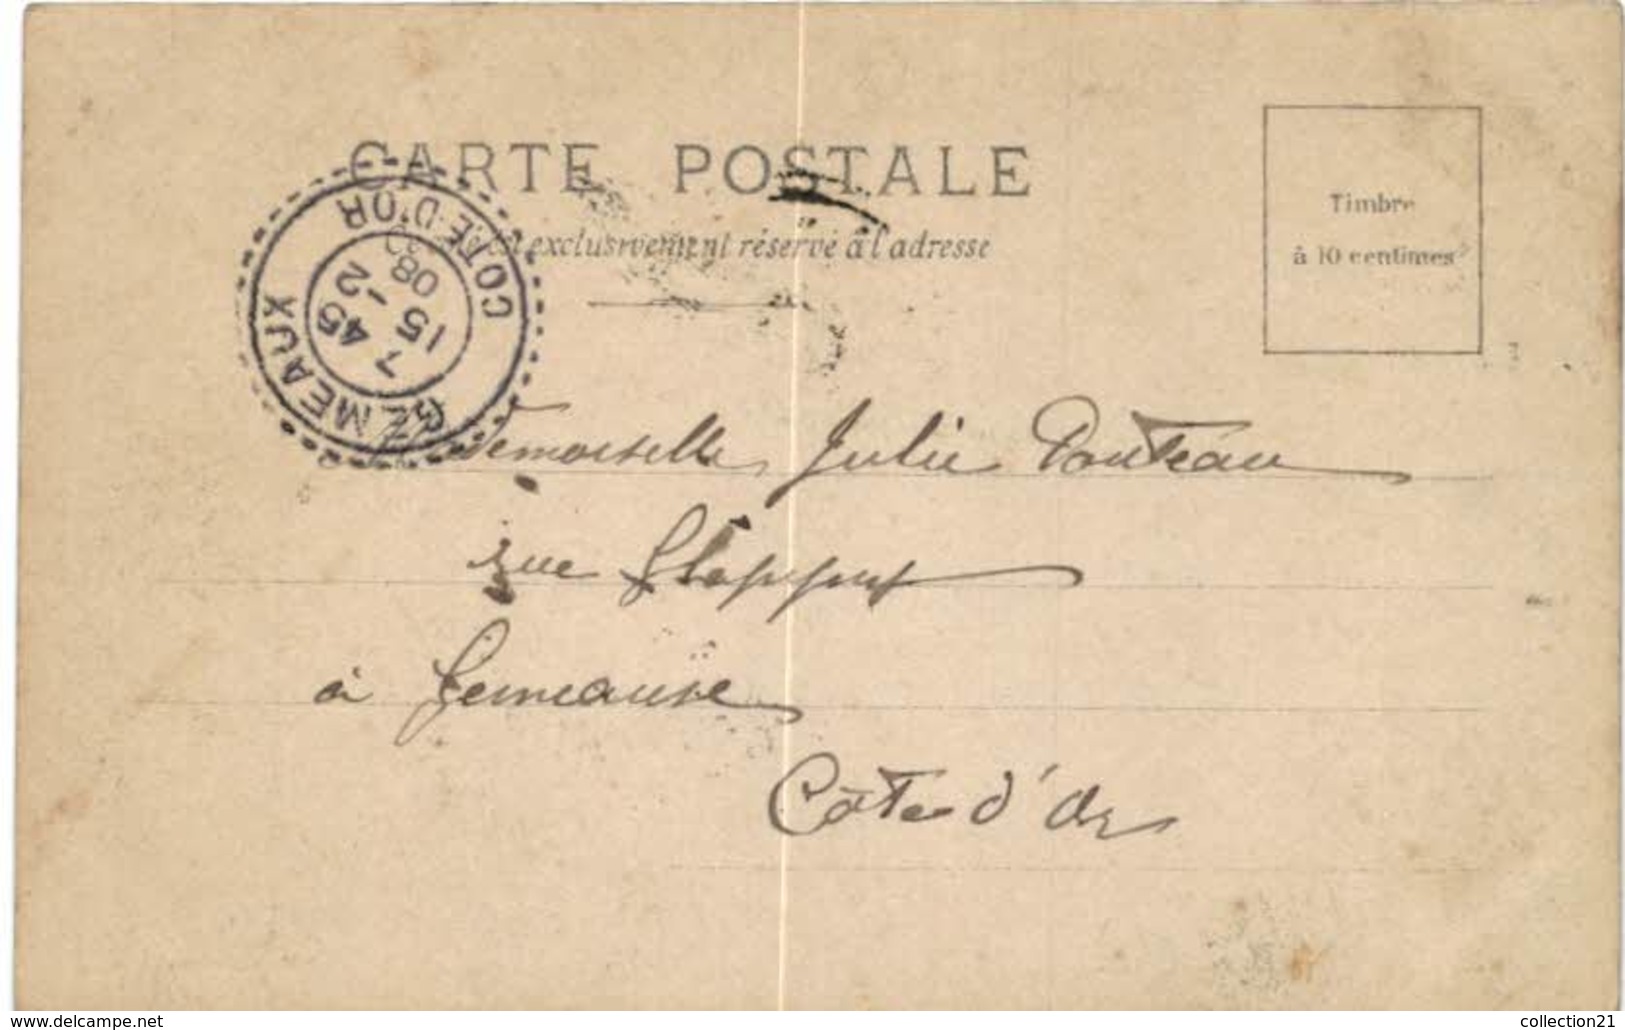 CARTE POSTALE
Ce côté est exclusivement réservé à l'adresse
Timbre
à 10 centimes
GEMEAUX
COTE D'OR
7 45
15 -2
08
Mademoiselle Julie Pouteau
rue
à Gemeause
Côte d'Or
www.delcampe.net
collection21